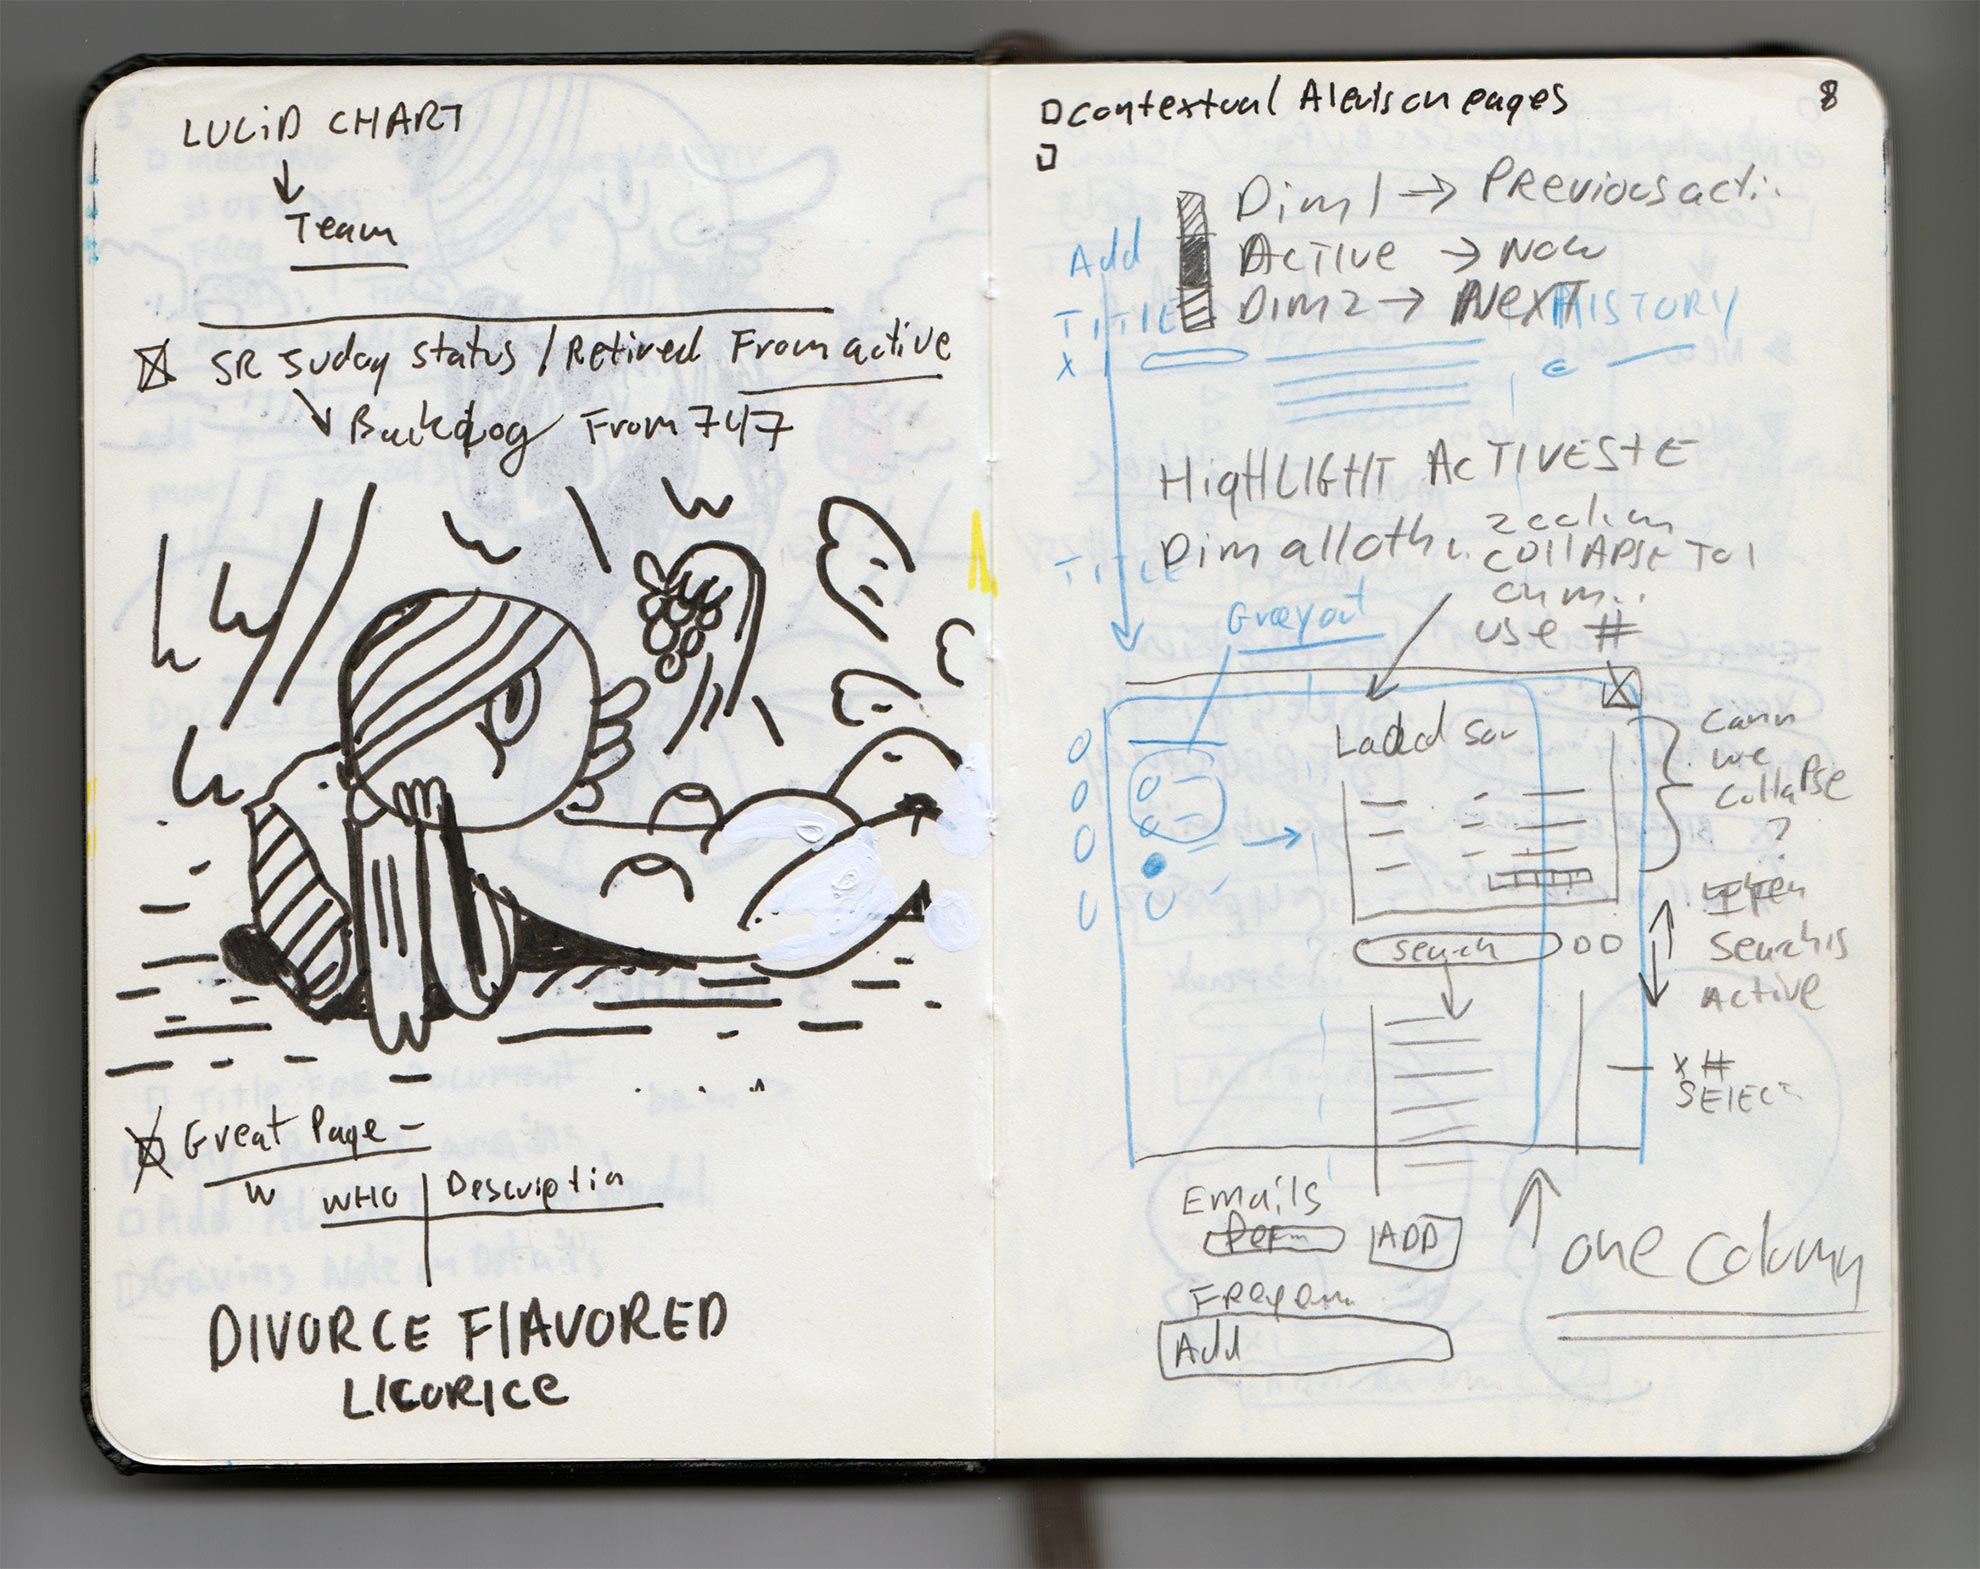 LUCiD CHART
Team
SR Suday Status / Retired From active
Backlog From 747
Great Page -
W WHO Description
DIVORCE FlAVORED
LICORICE
8
contextual Alerts on pages
Dim 1 → Previous acti
Active → Now
Dim 2 → Next
Add
TITLE
HISTORY
X
HigHLIGHT ACTIVE STE
Dim all oth
COllAPSE TO 1
use #
TITLE
Greyout
Cann
we
Collapse
?
When
Search is
Active
Search
X #
SELECT
Emails
ADD
one column
Add